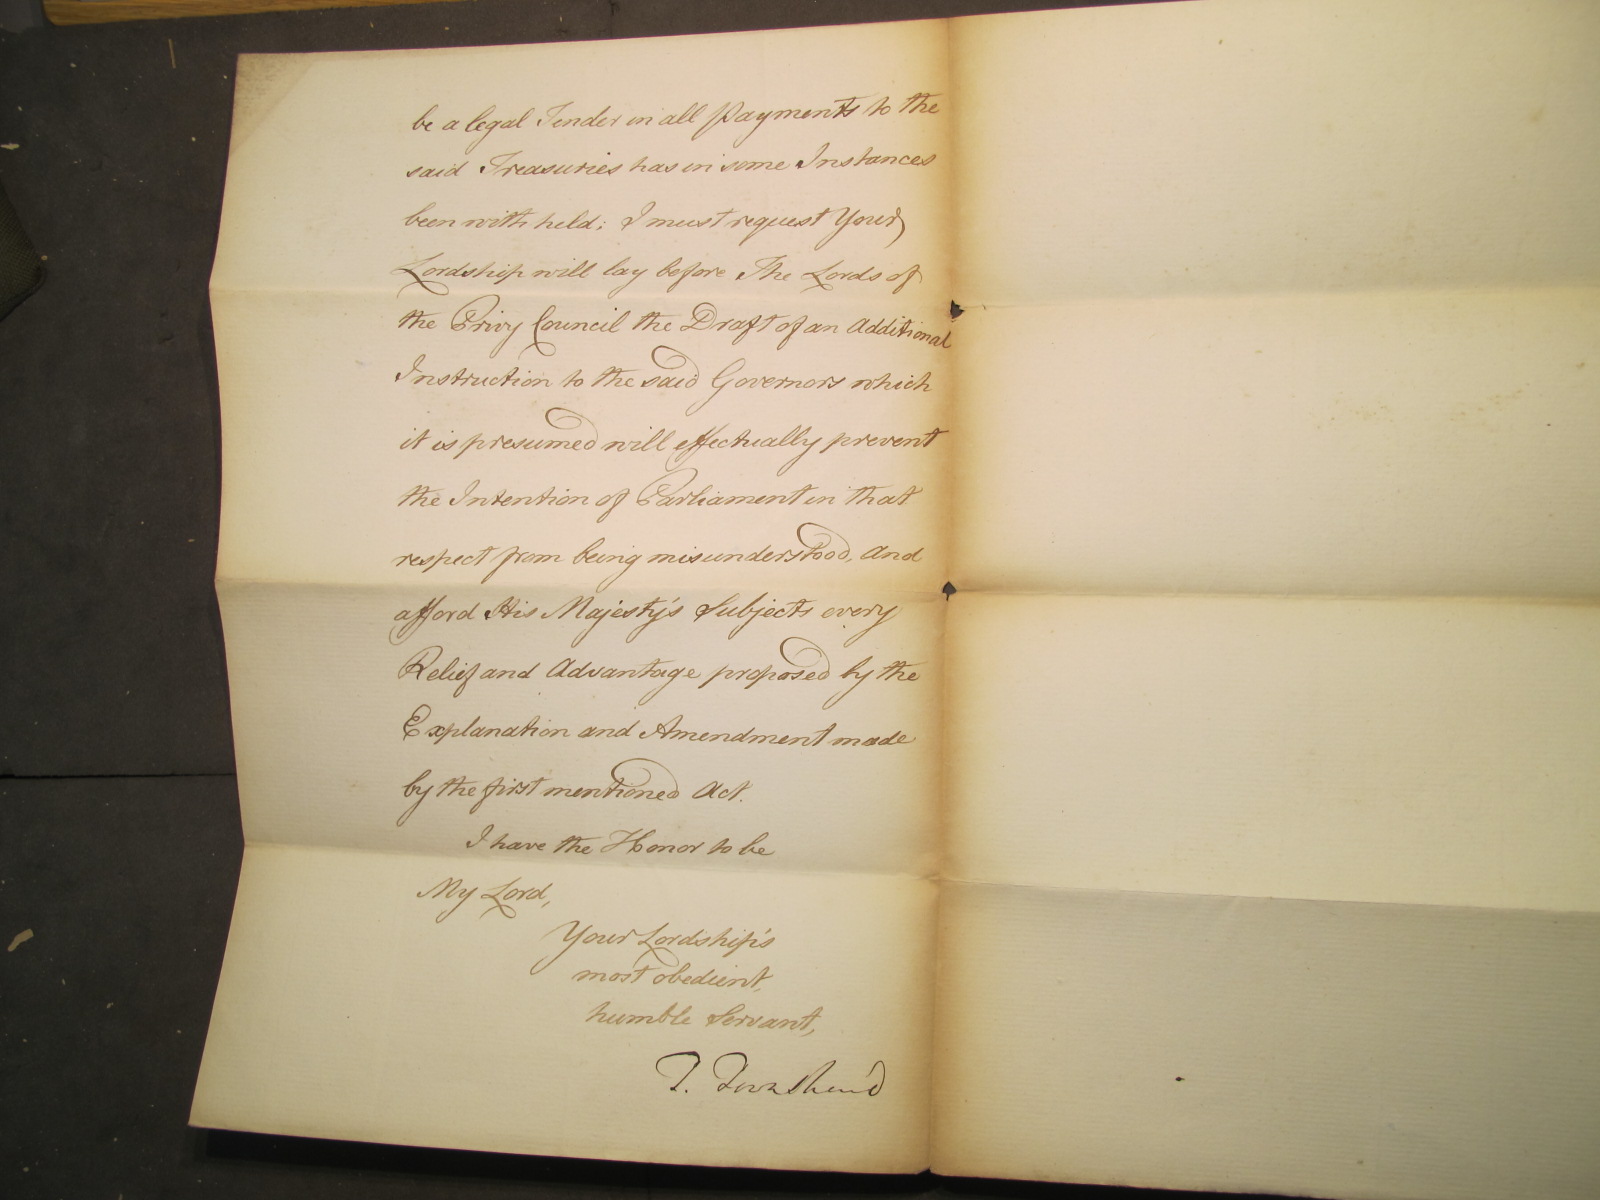 be a legal Tender in all Payments to the
said Treasuries has in some Instances
been with held; I must request Your
Lordship will lay before The Lords of
the Privy Council the Draft of an Additional
Instruction to the said Governors which
it is presumed will effectually prevent
the Intention of Parliament in that
respect from being misunderstood, and
afford His Majesty's Subjects every
Relief and Advantage proposed by the
Explanation and Amendment made
by the first mentioned Act.
I have the Honor to be
My Lord,
Your Lordship's
most obedient,
humble Servant,
T. Townshend